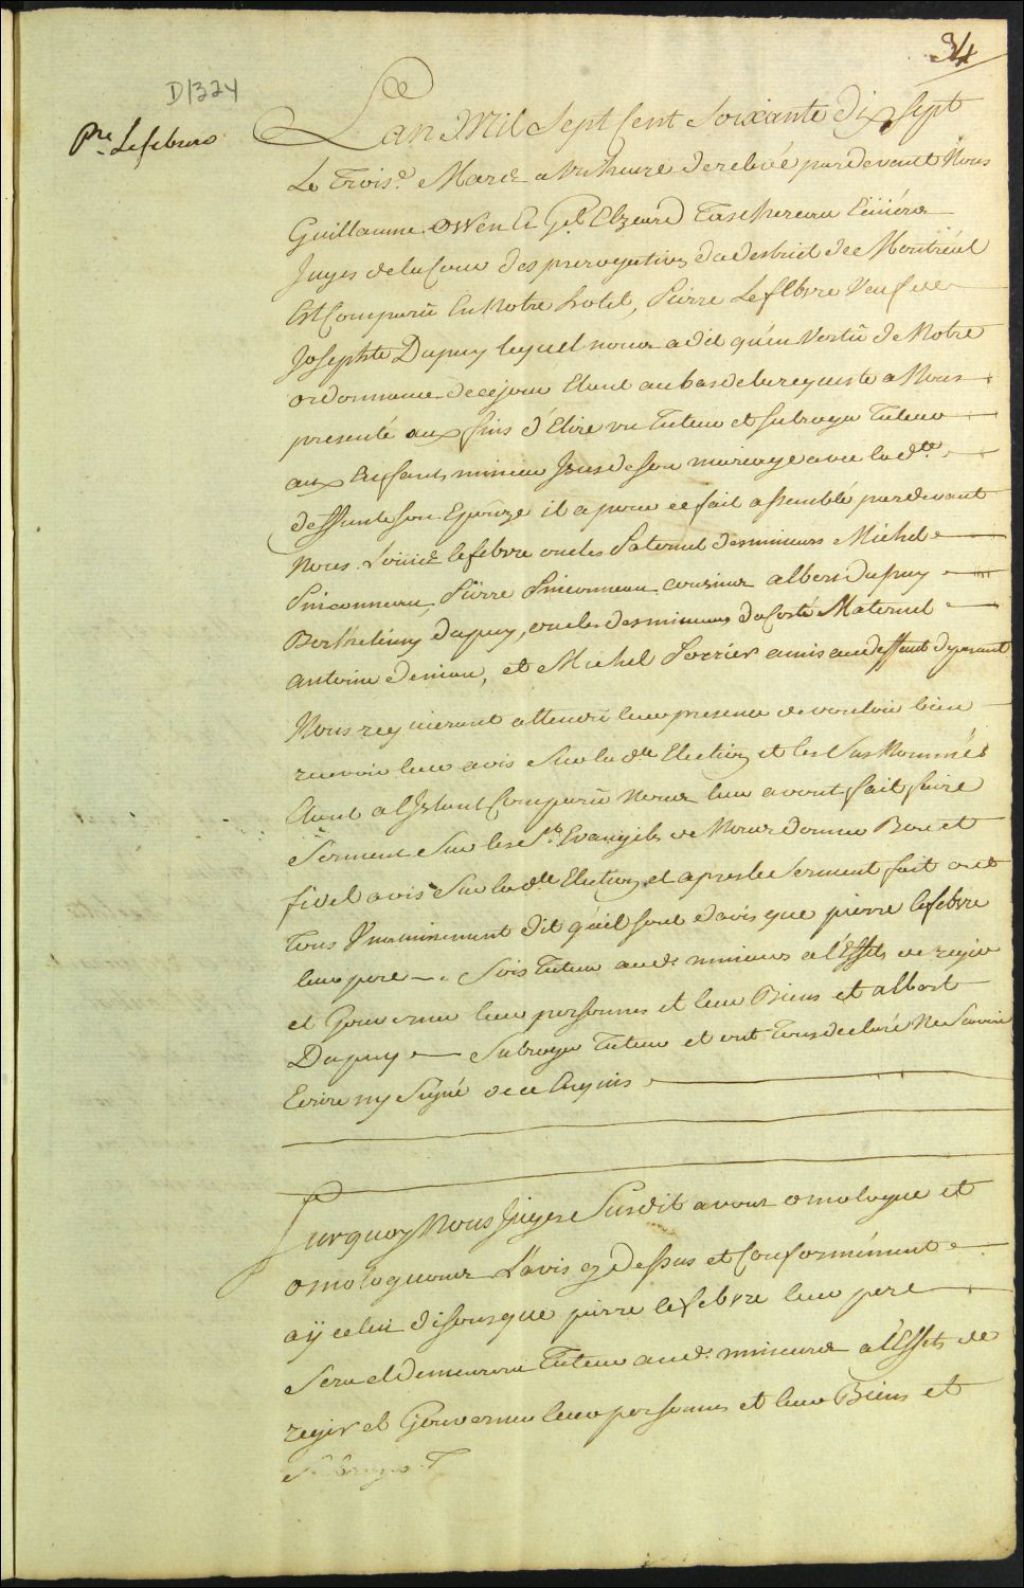 34
D1324
Pre. Lefebvre
Lan Mil Sept Cent Soixante dix Sept
Le trois.e Mars a un heure de relevé pardevant Nous
Guillaume Owen & Gel. Elzeard Taschereau Ecuiers
Juges de la Cour des prerogatives du destrict de Montréal
Est Comparu En Notre hotel, Pierre Lefebvre Veuf de
Josephte Dupuy lequel nous a dit qu'en Vertû de Notre
ordonnance de ce jour Etant au bas de la requeste a Nous
presenté aux fins d'Elire un Tuteur et subroge Tuteur
aux Enfants mineur Issus de son mariage avec la dte.
deffunte son Epouze il a pour ce fait assemblé pardevant
Nous. Louis lefebvre oncles Paternel des mineurs Michel
Pinsonneau, Pierre Pinsonneau cousins albert dupuy
Berthelemy dupuy, oncles des mineurs du Costé Maternel
antoine deniau, et Michel Poirier amis au deffaut de parant
Nous requierant attendu leur presence de vouloir bien
recevoir leur avis Sur la dte Election et les Sus Nommés
Etant a lJstant Comparû Nous leur avons fait faire
Serment Sur les Sts. Evangiles de Nous donner Bon et
fidel avis Sur la dte Election et apres le Serment fait ont
tous Unanimement dit qu'il sont d'avis que pierre lefebvre
leur pere Sois Tuteur aud. mineurs a l'Effets de regir
et Gouverner leur personnes et leur Biens et albert
Dupuy Subroge Tuteur et ont Tous declaré Ne Savoir
Ecrire ny Signé de ce Enquis
Surquoy Nous Juges Susdit avons omologue et
omologuons L'avis cy Dessus et Conformément
aÿ celui disons que pierre lefebvre leur pere
Sera et Demeurera Tuteur aud. mineurs a l'Effets de
regir et Gouverner leur personnes et leur Biens et
Subroge T